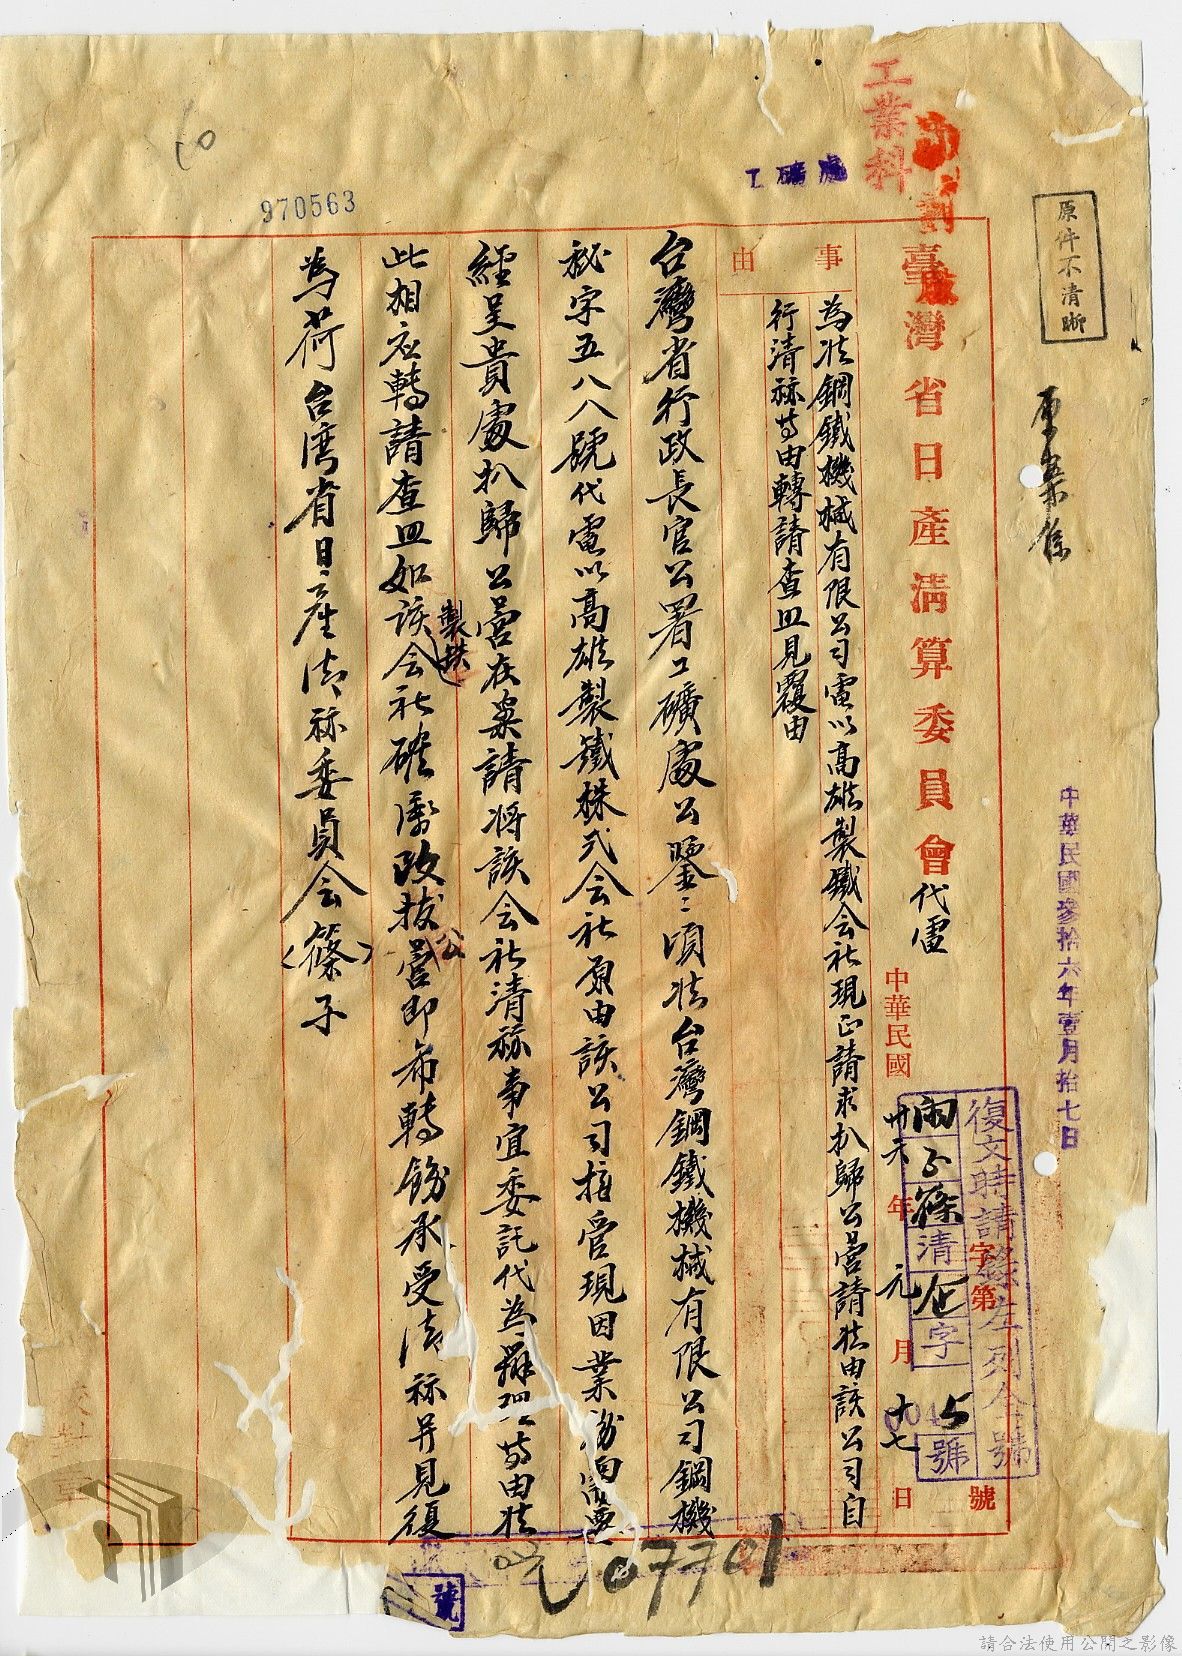 原件不清晰
中華民國參拾六年壹月拾七日
工業科
工礦處
970563
臺灣省日產清算委員會代電
復文時請錄左列全號
清
字
號
字第
號
中華民國卅六年元月十七日
事由
為准鋼鐵機械有限公司電以高雄製鐵会社現正請求扒歸公營請准由該公司自
行清祘等由轉請查照見覆由
台灣省行政長官公署工礦處公鑒:頃准台灣鋼鐵機械有限公司鋼機
秘字五八八號代電以高雄製鐵株式会社原由該公司接管現因業務需要
經呈貴處扒歸公營在案請將該会社清祘事宜委託代為辦理等由准
此相应轉請查照如該会社確係改撥公營即希轉飭承受清祘并見復
製鉄
為荷台湾省日產清祘委員会(篠)子
07701
號
請合法使用公開之影像